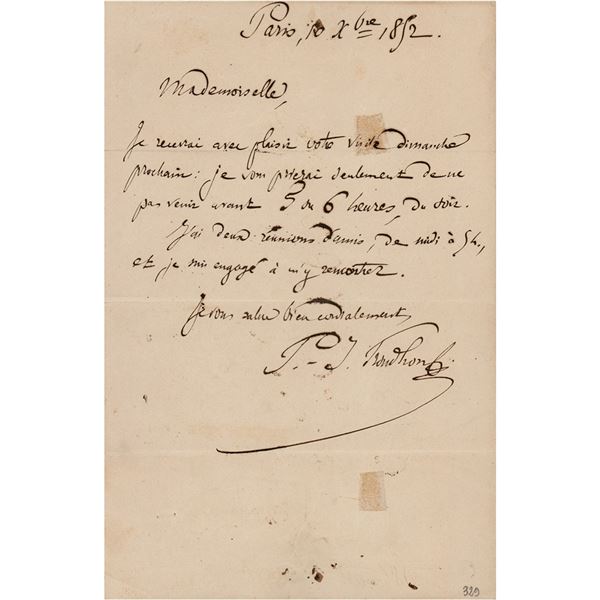 Paris, 10 Xbre 1852.
Mademoiselle,
Je recevrai avec plaisir votre visite dimanche
prochain : je vous prierai seulement de ne
pas venir avant 5 ou 6 heures, du soir.
J'ai deux réunions d'amis, de midi à 5 h.,
et je suis engagé à m'y rencontrer.
Je vous salue bien cordialement,
P.-J. Proudhon
329